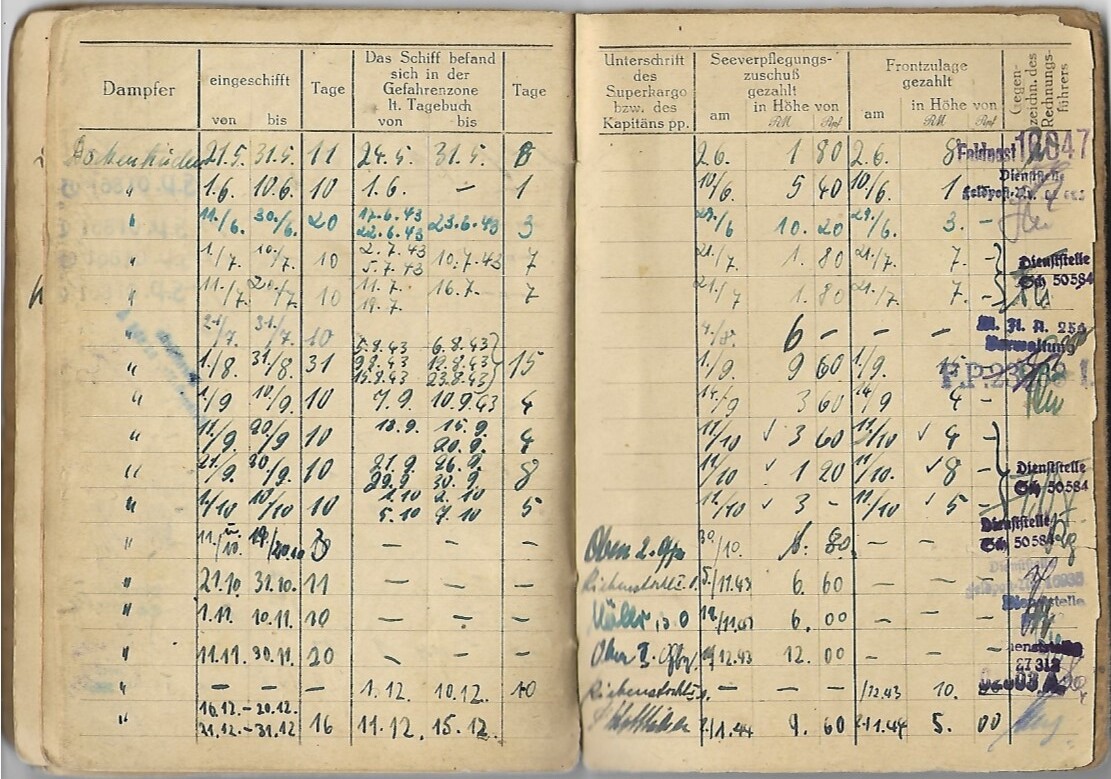 Dampfer eingeschifft Tage Das Schiff befand sich in der Gefahrenzone lt. Tagebuch Tage
von bis von bis
21.5. 31.5. 11 24.5. 31.5. 8
" 1.6. 10.6. 10 1.6. — 1
" 11./6. 30./6. 20 17.6.43 22.6.43 23.6.43 3
" 1./7. 10./7. 10 2.7.43 5.7.43 10.7.43 7
" 11./7. 20./7. 10 11.7. 19.7. 16.7. 7
" 21/7. 31./7. 10
" 1./8. 31./8. 31 5.8.43 6.8.43 9.8.43 12.8.43 15.8.43 23.8.43 15
" 1./9 10./9. 10 7.9. 10.9.43 4
" 11./9. 20./9 10 13.9. 15.9. 20.9. 4
" 21./9. 30./9. 10 21.9 26.9. 29.9. 30.9. 8
" 1/10 10/10 10 1.10 2.10 5.10 7.10 5
" 11./10. — —
" 21.10. 31.10. 11 — —
" 1.11. 10.11. 10 — —
" 11.11. 30.11. 20 — —
" — — — 1.12. 10.12. 10
" 16.12.–20.12. 21.12.–31.12 16 11.12. 15.12.
Unterschrift des Superkargo bzw. des Kapitäns pp. Seeverpflegungszuschuß gezahlt Frontzulage gezahlt Gegenzeichn. des Rechnungsführers
am in Höhe von RM Rpf am in Höhe von RM Rpf
2.6. 1 80 2.6. 8 Feldpost
10/6. 5 40 10/6. 1 Dienststelle
29./6 10. 20 29./6. 3. –
21./7. 1. 80 21./7. 7. – Dienststelle
21./7 1. 80 21./7. 7. – Sch 50584
6 – – – M. Fl. A. 256 Verwaltung
1./9 9 60 1./9. 15
14./9 3 60 14./9 4 –
11/10 ✓ 3 60 11/10 ✓ 4 –
11/10 ✓ 1 20 11/10. ✓ 8 – Dienststelle
11/10 ✓ 3 – 11/10. ✓ 5 – Sch 50584
30/10. 80 – – Dienststelle Sch 50584
5./11.43 6. 60 – –
6. 00 – – Dienststelle
12.43 12. 00 – –
– – – /12.43 10. 27312
1.44 9. 60 1.44 5. 00